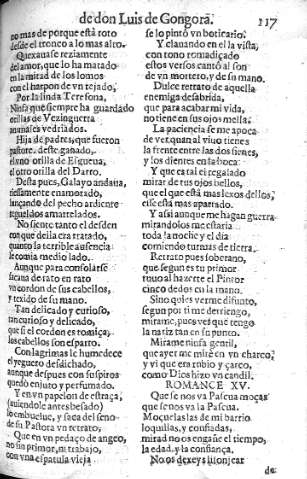 de don Luis de Gongora. 117
no mas de porque està roto
desde el tronco a lo mas alto.
Quexauase reziamente
del amor, que lo ha matado
en la mitad de los lomos
con el harpon de vn tejado,
Por la linda Teresona,
Ninfa que siempre ha guardado
orillas de Vezinguerra
animales vedriados.
Hija de padres, que fueron
pastores deste ganado,
el vno orilla de Esgueua,
el otro orilla del Darro.
Desta pues, Galayo andaua
tiessamente enamorado,
lançando del pecho ardiente
regueldos amartelados.
No siente tanto el desden
con que della era tratado,
quanto la terrible ausencia
le comia medio lado.
Aunque para consolarse
sacaua de rato en rato
vn cordon de sus cabellos,
y texido de su mano.
Tan delicado y curioso,
tan curioso y delicado,
que si el cordon es tomiça,
los cabellos son esparto.
Con lagrimas le humedece
el yeguero desdichado,
aunque despues con suspiros
quedò enjuto y perfumado.
Y en vn papelon de estraça,
(auiendole antes besado)
lo embuelue, y saca del seno
de su Pastora vn retrato;
Que en vn pedaço de angeo,
no sin primor, ni trabajo,
con vna espatula vieja
se lo pintò vn boticario.
Y clauando en el la vista,
con tono romadizado
estos versos cantò al son
de vn mortero, y de su mano.
Dulce retrato de aquella
enemiga desabrida,
que para acabar mi vida,
no tiene en sus ojos mella:
La paciencia se me apoca
de ver quan al viuo tienes
la frente entre las dos sienes,
y los dientes en la boca:
Y que es tal el regalado
mirar de tus ojos bellos,
que el que està mas lexos dellos,
esse està mas apartado.
Y assi aunque me hagan guerra
mirandolos me estaria
toda la noche y el dia
comiendo turmas de tierra.
Retrato pues soberano,
que segun es tu primor
tuuo al hazerte el Pintor
cinco dedos en la mano.
Sino quies verme difunto,
segun por ti me derriengo,
mirame, pues ves que tengo
la nariz tan en su punto.
Mirame ninfa gentil,
que ayer me mirè en vn charco,
y vi que era rubio y zarco,
como Dios hizo vn candil.
ROMANCE XV.
Que se nos va Pascua moças
que se nos va la Pascua.
Moçuelas las de mi barrio,
loquillas, y confiadas,
mirad no os engañe el tiempo,
la edad, y la confiança.
No os dexeys lisonjear
de